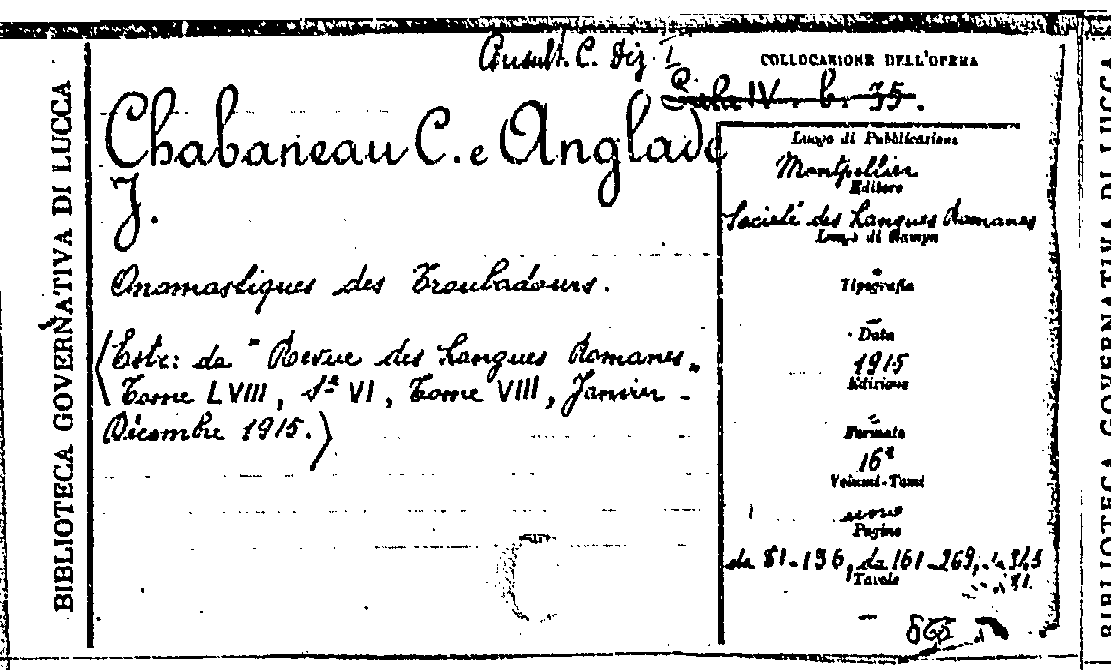 BIBLIOTECA GOVERNATIVA DI LUCCA
Consult. C. Diz. I
COLLOCAZIONE DELL'OPERA
Sala IV. b. 35.
Chabaneau C. e Anglade
J.
Onomastiques des Troubadours.
(Estr: da "Revue des Langues Romanes„
Tome LVIII, Sª VI, Tome VIII, Janvier -
Décembre 1915.)
Luogo di Pubblicazione
Montpellier
Editore
Societé des Langues Romanes
Luogo di Stampa
Tipografia
Data
1915
Edizione
Formato
16º
Volumi-Tomi
Pagine
da 81-136, da 161-269, da 345
Tavole
565
BIBLIOTECA GOVERNATIVA DI LUCCA